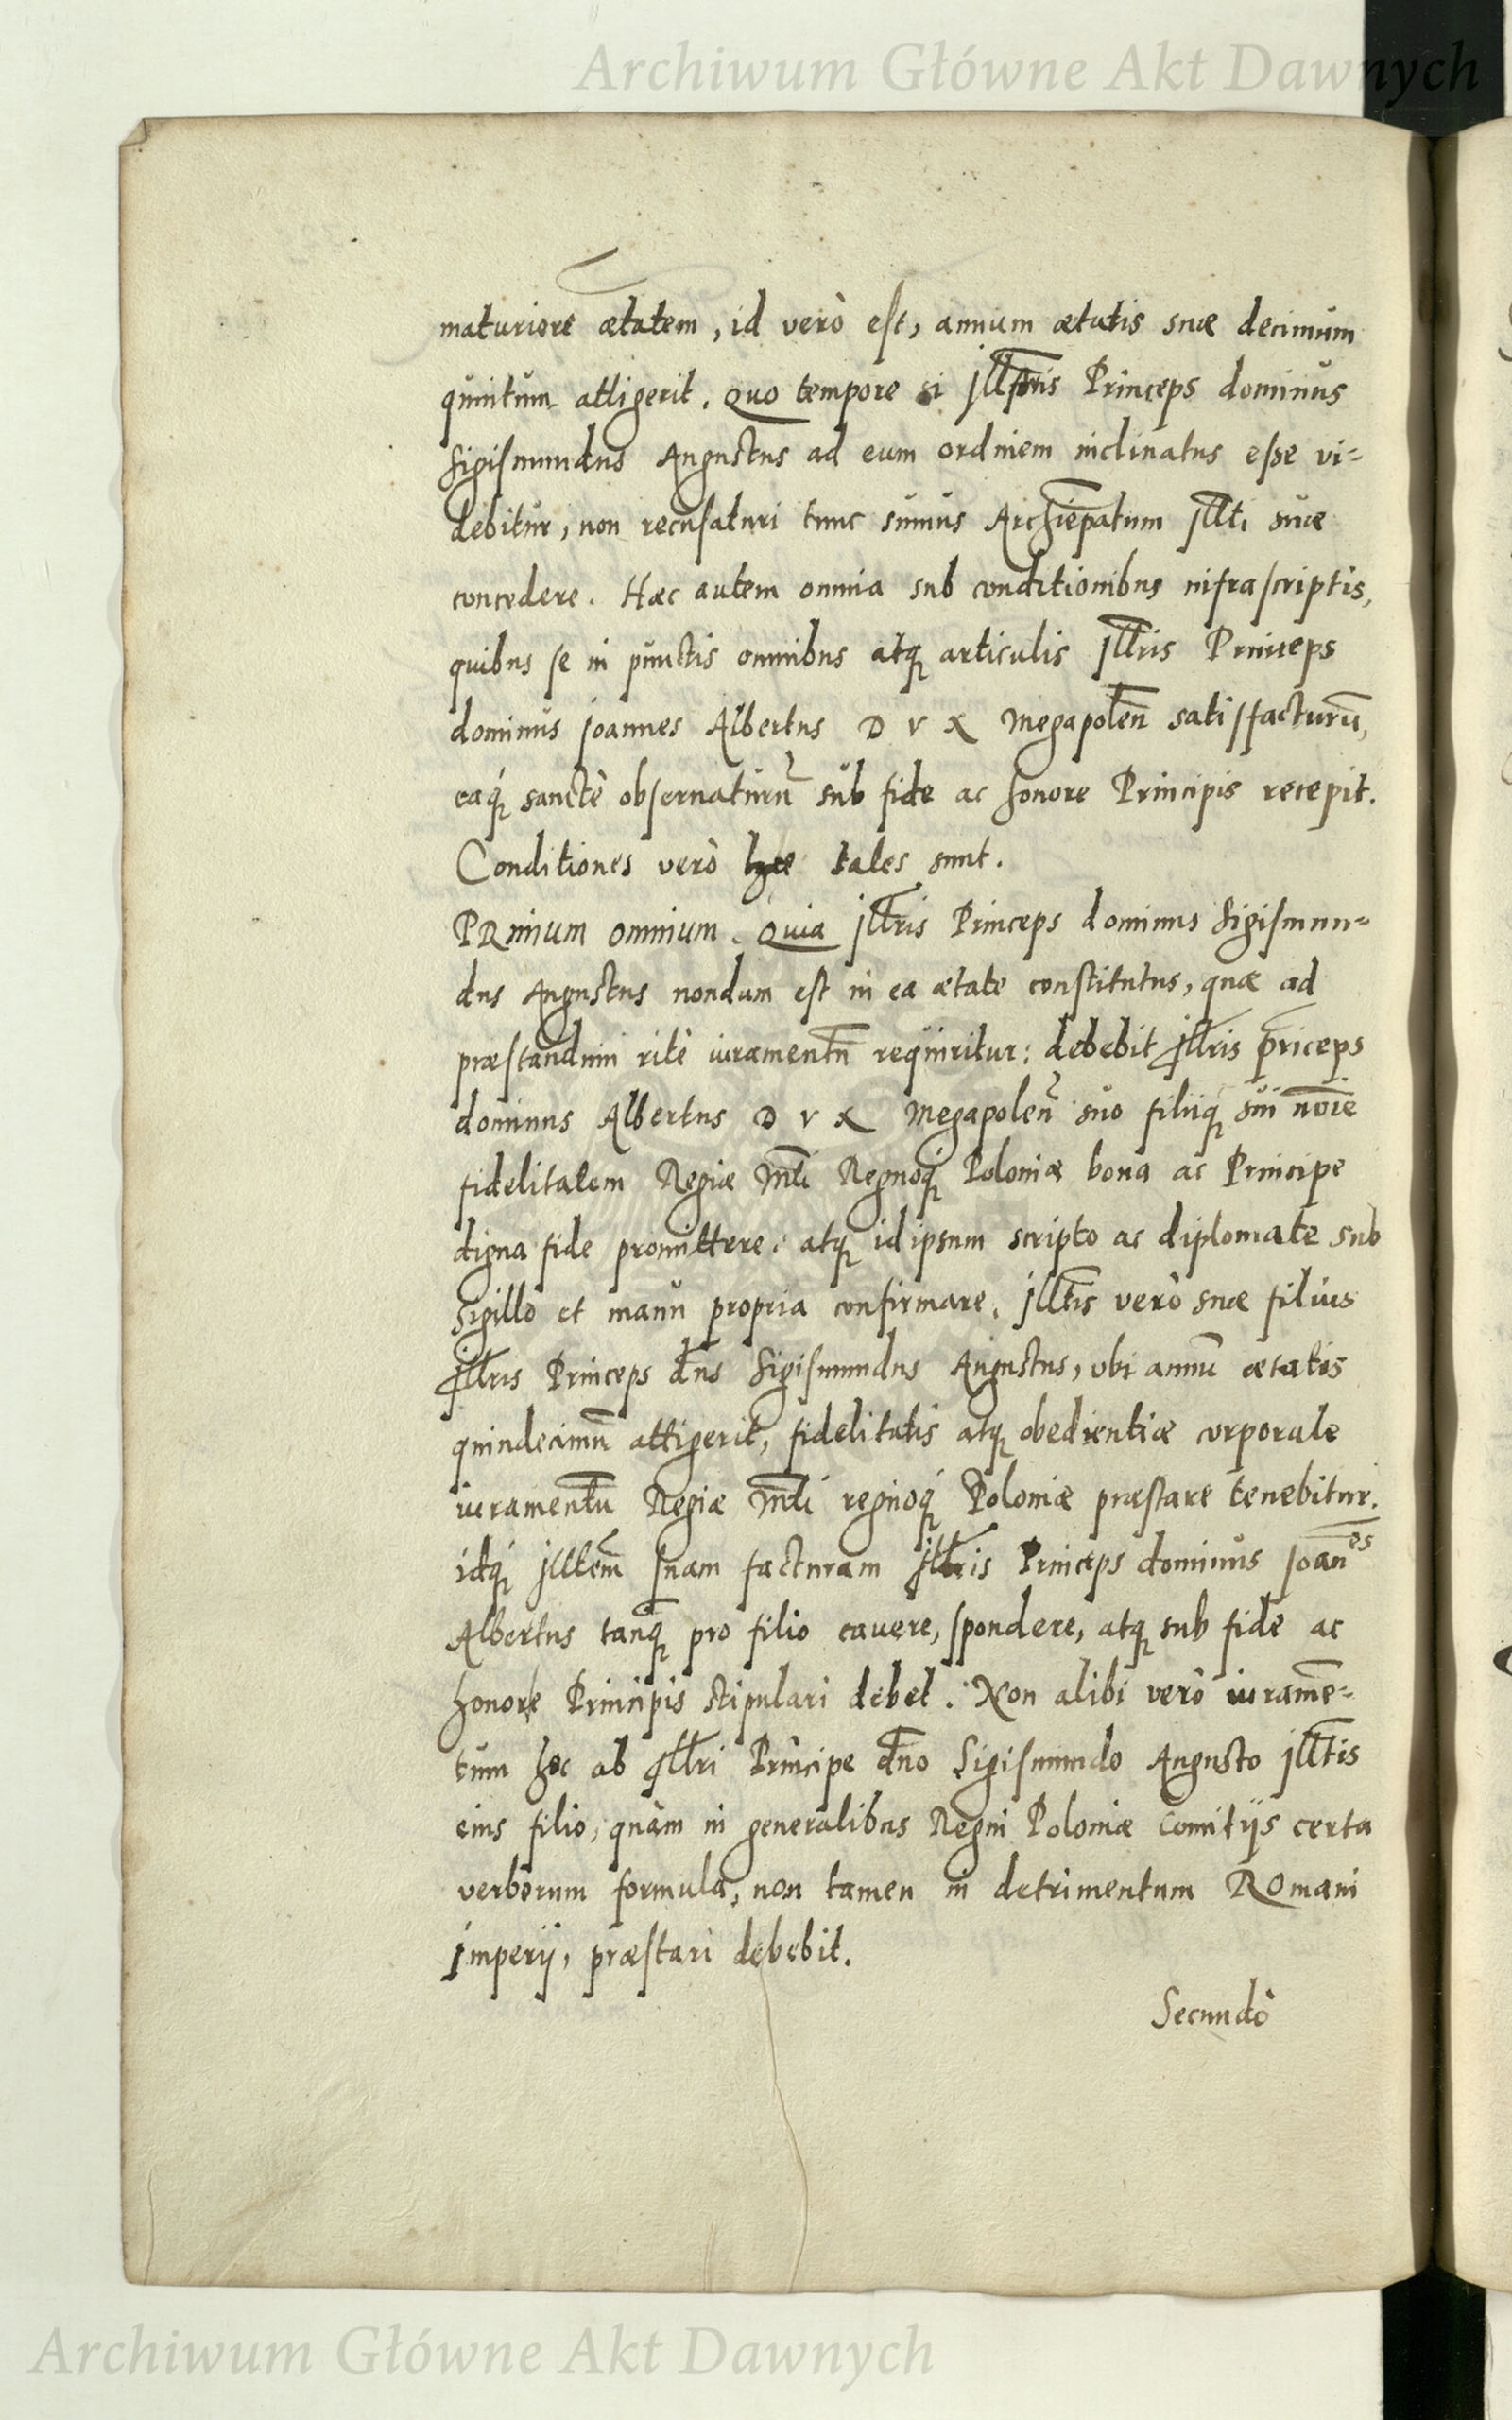 Archiwum Główne Akt Dawnych
maturiore ætatem, id verò est, annum ætatis suæ decimum
quintum attigerit. Quo tempore si Jllris Princeps dominus
Sigismundus Augustus ad eum ordinem inclinatus esse vi=
debitur, non recusaturi tunc sumus Archiep̄atum Jllti suæ
concedere. Hæc autem omnia sub conditionibus infrascriptis,
quibus se in punctis omnibus atq́ articulis Jllris Princeps
dominus Joannes Albertus DVX Megapoleñ satisfacturū,
eaq́ sanctè obseruaturū sub fide ac honore Principis recepit.
Conditiones verò hæ tales sunt.
PRimum omnium. Quia Jllris Princeps dominus Sigismun=
dus Augustus nondum est in ea ætate constitutus, quæ ad
præstandum ritè iuramentū requiritur: debebit Jllris priceps
dominus Albertus DVX Megapoleñ suo filiiq́ sui noīe
fidelitatem Regiæ Mti Regnoq́ Poloniæ bona ac Principe
digna fide promittere: atq́ idipsum scripto ac diplomate sub
sigillo et manu propria confirmare. Jlltis verò suæ filius
Jllris Princeps dns Sigismundus Augustus, vbi annū ætatis
quindecimū attigerit, fidelitatis atq́ obedientiæ corporale
iuramentū Regiæ Mti regnoq́ Poloniæ præstare tenebitur.
idq́ Jlltem̄ suam facturam Jllris Princeps dominus Joan̄es
Albertus tanq́ pro filio cauere, spondere, atq́ sub fide ac
honore Principis stipulari debet. Non alibi verò iuramē=
tum hoc ab Jllri Principe dno Sigismundo Augusto Jlltis
eius filio, quàm in generalibus Regni Poloniæ Comitijs certa
verborum formula, non tamen in detrimentum Romani
Jmperij, præstari debebit.
Secundò
Archiwum Główne Akt Dawnych